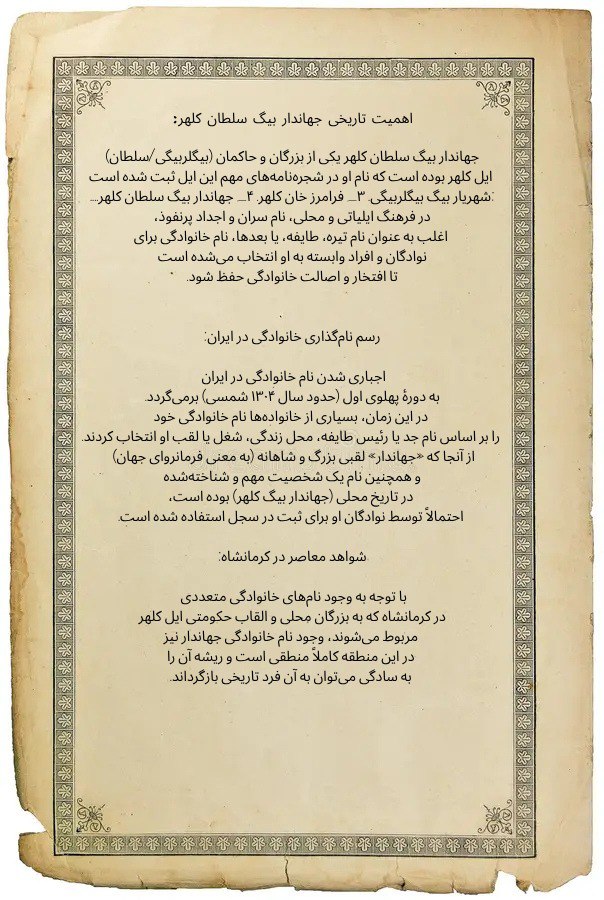 اهمیت تاریخی جهاندار بیگ سلطان کلهر:
جهاندار بیگ سلطان کلهر یکی از بزرگان و حاکمان (بیگلربیگی/سلطان)
ایل کلهر بوده است که نام او در شجره‌نامه‌های مهم این ایل ثبت شده است
:شهریار بیگ بیگلربیگی. ۳_ فرامرز خان کلهر. ۴_ جهاندار بیگ سلطان کلهر...
در فرهنگ ایلیاتی و محلی، نام سران و اجداد پرنفوذ،
اغلب به عنوان نام تیره، طایفه، یا بعدها، نام خانوادگی برای
نوادگان و افراد وابسته به او انتخاب می‌شده است
تا افتخار و اصالت خانوادگی حفظ شود.
رسم نام‌گذاری خانوادگی در ایران:
اجباری شدن نام خانوادگی در ایران
به دورهٔ پهلوی اول (حدود سال ۱۳۰۴ شمسی) برمی‌گردد.
در این زمان، بسیاری از خانواده‌ها نام خانوادگی خود
را بر اساس نام جد یا رئیس طایفه، محل زندگی، شغل یا لقب او انتخاب کردند.
از آنجا که «جهاندار» لقبی بزرگ و شاهانه (به معنی فرمانروای جهان)
و همچنین نام یک شخصیت مهم و شناخته‌شده
در تاریخ محلی (جهاندار بیگ کلهر) بوده است،
احتمالاً توسط نوادگان او برای ثبت در سجل استفاده شده است.
شواهد معاصر در کرمانشاه:
با توجه به وجود نام‌های خانوادگی متعددی
در کرمانشاه که به بزرگان محلی و القاب حکومتی ایل کلهر
مربوط می‌شوند، وجود نام خانوادگی جهاندار نیز
در این منطقه کاملاً منطقی است و ریشه آن را
به سادگی می‌توان به آن فرد تاریخی بازگرداند.